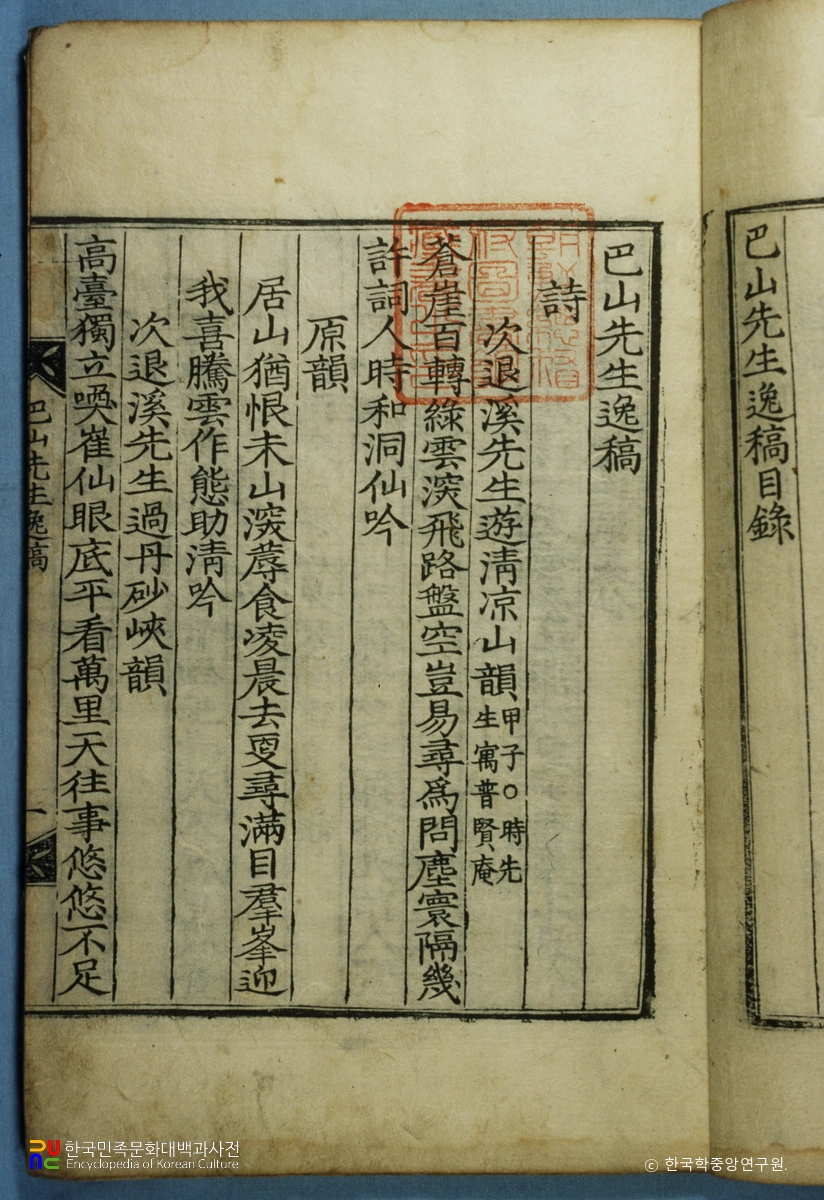 巴山先生逸稿目錄
巴山先生逸稿
詩
次退溪先生遊淸凉山韻 甲子○時先生寓普賢庵
蒼崖百轉綠雲深飛路盤空豈易尋爲問塵寰隔幾
許詞人時和洞仙吟
原韻
居山猶恨未山深蓐食凌晨去更尋滿目羣峯迎
我喜騰雲作態助淸吟
次退溪先生過丹砂峽韻
高臺獨立喚崔仙眼底平看萬里天往事悠悠不足
巴山先生逸稿
一
한국민족문화대백과사전
Encyclopedia of Korean Culture
© 한국학중앙연구원.